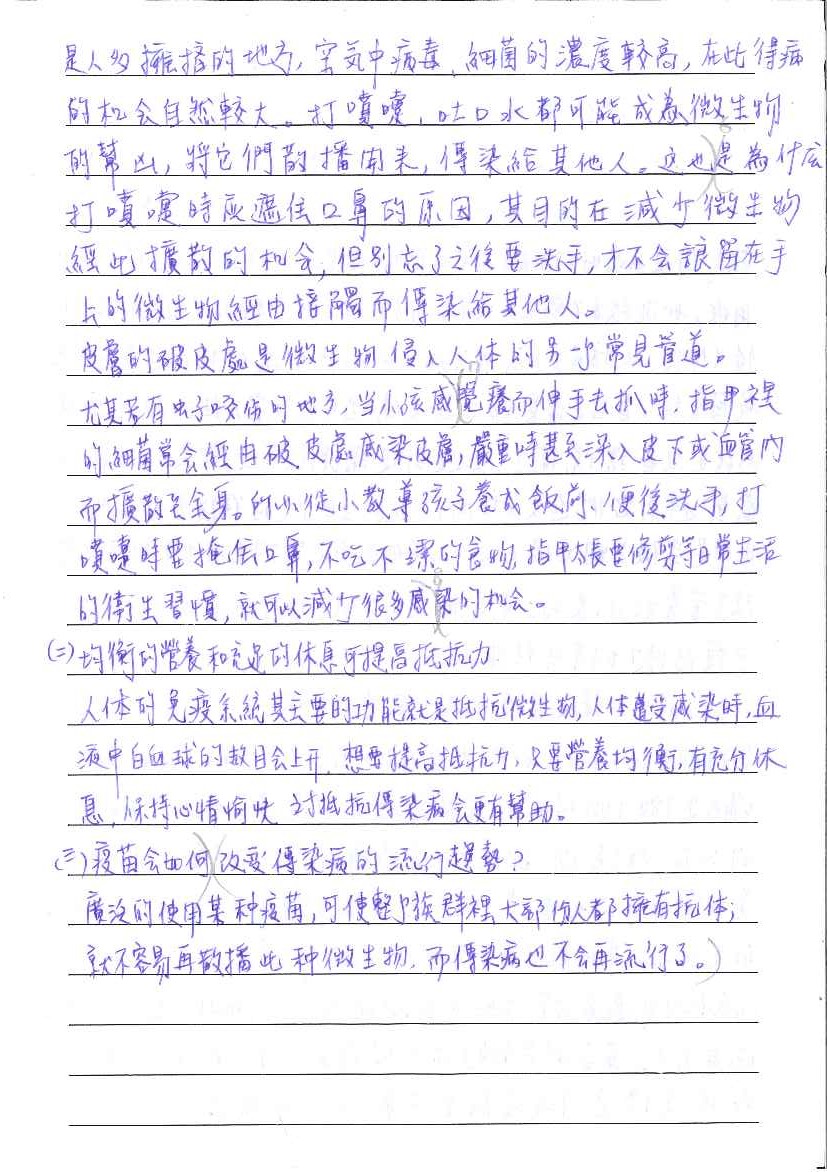 是人多擁擠的地方，空気中病毒、細菌的濃度較高，在此得病
的机会自然較大。打噴嚏，吐口水都可能成為微生物
的幫凶，将它們散播開来，傳染給其他人。这也是為什么
打噴嚏時应遮住口鼻的原因，其目的在減少微生物
經此擴散的机会，但別忘了之後要洗手，才不会讓留在手
上的微生物經由接觸而傳染給其他人。
皮膚的破皮處是微生物侵入人体的另一个常見管道。
尤其若有虫子咬伤的地方，当小孩感覺癢而伸手去抓時，指甲裡
的細菌常会經由破皮處感染皮膚，嚴重時甚至深入皮下或血管內
而擴散至全身。所以從小教導孩子養成飯前、便後洗手，打
噴嚏時要掩住口鼻，不吃不潔的食物，指甲太長要修剪等日常生活
的衛生習慣，就可以減少很多感染的机会。
(二)均衡的營養和充足的休息可提高抵抗力
人体的免疫系統其主要的功能就是抵抗微生物，人体遭受感染時，血
液中白血球的数目会上升，想要提高抵抗力，只要營養均衡，有充分休
息，保持心情愉快 对抵抗傳染病会更有幫助。
(三)疫苗会如何改变傳染病的流行趨勢？
廣泛的使用某种疫苗，可使整个族群裡大部份人都擁有抗体；
就不容易再散播此种微生物，而傳染病也不会再流行了。)